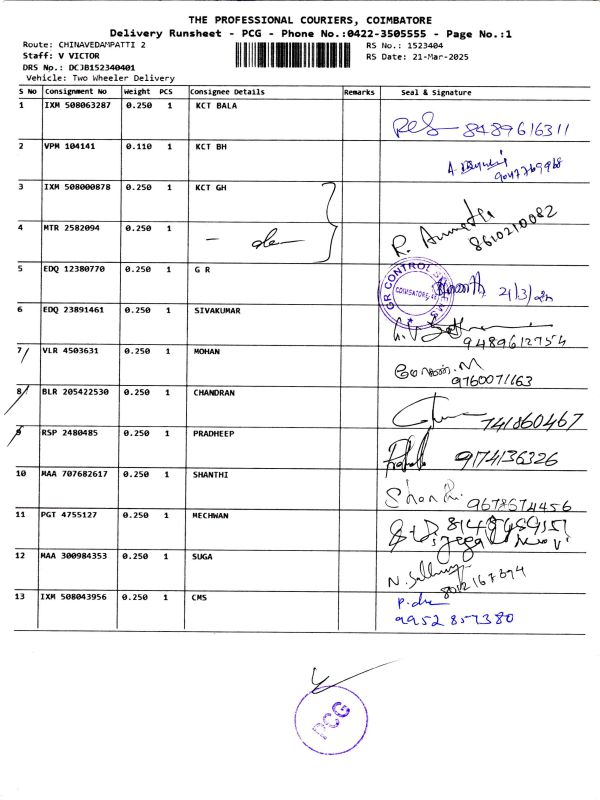 THE PROFESSIONAL COURIERS, COIMBATORE
Delivery Runsheet - PCG - Phone No.:0422-3505555 - Page No.:1
Route: CHINAVEDAMPATTI 2
RS No.: 1523404
Staff: V VICTOR
RS Date: 21-Mar-2025
DRS No.: DCJB152340401
Vehicle: Two Wheeler Delivery
S No Consignment No Weight PCS Consignee Details Remarks Seal & Signature
1 IXM 508063287 0.250 1 KCT BALA
8489616311
2 VPM 104141 0.110 1 KCT BH
9047769968
3 IXM 508000878 0.250 1 KCT GH
4 MTR 2582094 0.250 1
8610210082
5 EDQ 12380770 0.250 1 G R
GR CONTROL
COIMBATORE
21/3/25
6 EDQ 23891461 0.250 1 SIVAKUMAR
9489612754
7 VLR 4503631 0.250 1 MOHAN
மோகன். M
9760071163
8 BLR 205422530 0.250 1 CHANDRAN
741860467
9 RSP 2480485 0.250 1 PRADHEEP
9174136326
10 MAA 707682617 0.250 1 SHANTHI
Shanthi. 9678674456
11 PGT 4755127 0.250 1 MECHWAN
12 MAA 300984353 0.250 1 SUGA
8012167394
13 IXM 508043956 0.250 1 CMS
9952857380
PCG